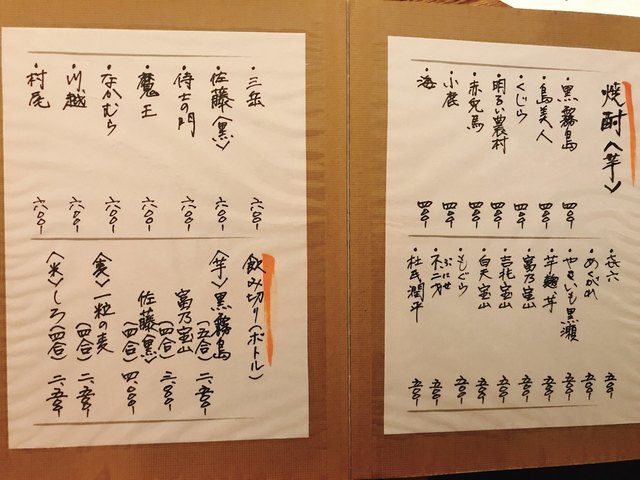 焼酎〈芋〉
・黒霧島 四〇〇-
・島美人 四〇〇-
・くじら 四〇〇-
・明るい農村 四〇〇-
・赤兎馬 四〇〇-
・小鹿 四〇〇-
・海 四〇〇-
・㐂六 五〇〇-
・めくばれ 五〇〇-
・やきいも黒瀬 五〇〇-
・芋麹芋 五〇〇-
・富乃宝山 五〇〇-
・吉花宝山 五〇〇-
・白天宝山 五〇〇-
・もぐら 五〇〇-
・不二才 ぶにせ 五〇〇-
・杜氏潤平 五〇〇-
・三岳 六〇〇-
・佐藤〈黒〉 六〇〇-
・侍士の門 六〇〇-
・魔王 六〇〇-
・なかむら 六〇〇-
・川越 六〇〇-
・村尾 六〇〇-
飲み切り(ボトル)
〈芋〉黒霧島(五合) 二、五〇〇-
富乃宝山(四合) 三、〇〇〇-
佐藤〈黒〉(四合) 四、〇〇〇-
〈麦〉一粒の麦(四合) 二、五〇〇-
〈米〉しろ(四合) 二、五〇〇-